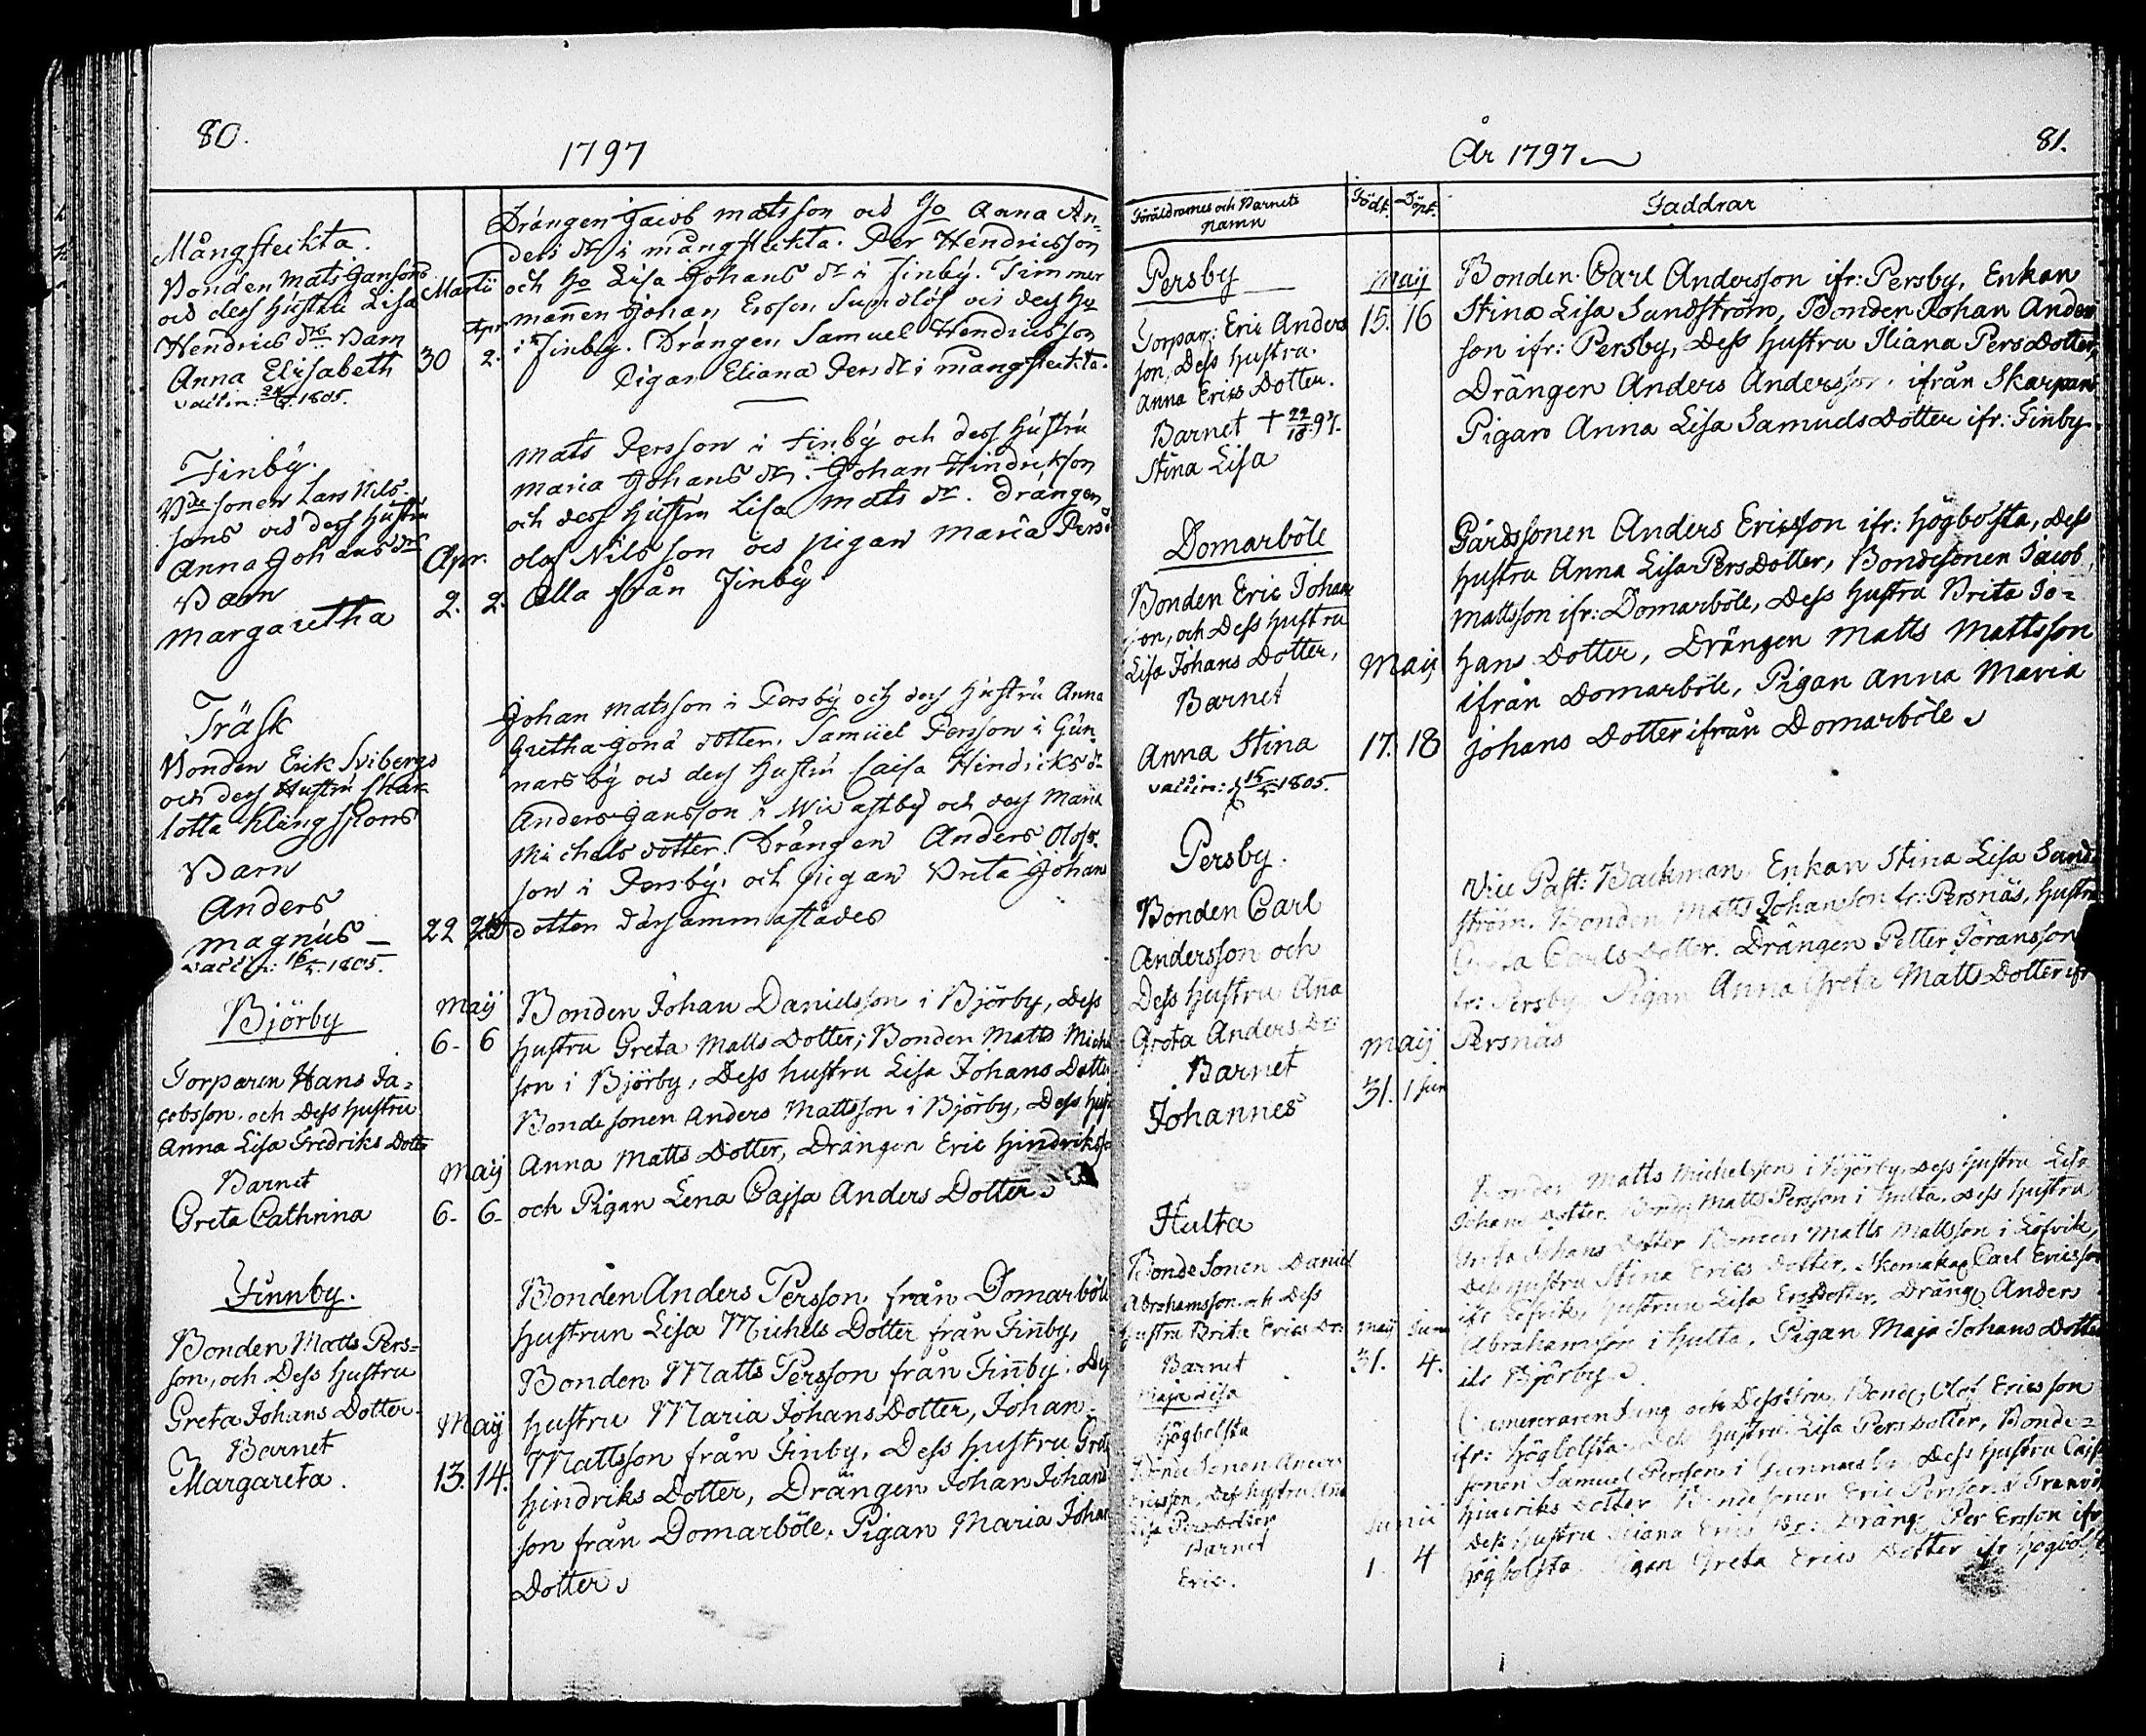 80.
1797
Mångstekta.
Bonden Mats Jansons
och dess Hustru Lisa
Hendrics dr: Barn
Anna Elisabeth
vaccin: 1805.
Martii
Apr.
30 2.
Drängen Jacob matsson och Ho Anna An-
ders dr i mångstekta. Per Hendricsson
och Ho Lisa Johans dr i Finby. Timmer
mannen Johan Ersson Sundlöf och dess Ho
i Finby. Drängen Samuel Hendricsson
Pigan Eliana Pers dr i mångstekta.
Finby.
Bde sonen Lars Nils-
sons och dess Hustru
Anna Johans dr
Barn
margaretha
Apr.
2. 2.
Mats Persson i Finby och dess Hustru
maria Johans dr. Johan Hindrikson
och dess Hustru Lisa Mats dr. drängen
olof Nilsson och pigan maria Pers dr
Alla från Finby
Träsk
Bonden Erik Svibergs
och dess Hustru Char
lotta Klingspors
Barn
Anders
magnus —
vaccin: 16/5. 1805.
22
Johan matsson i Persby och dess Hustru Anna
Gretha Jona dotter. Samuel Persson i Gun-
narsby och dess Hustru Caisa Hindricks dr
Anders Jansson i Wivastby och dess Maria
Michels dotter. Drängen Anders Olofs-
son i Persby. och pigan Brita Johans
dotter därsammastädes
Björby
Torparen Hans Ja-
cobsson. och Dess hustru
Anna Lisa Fredriks Dotter
Barnet
Greta Cathrina
Maij
6. 6
Maij
6. 6.
Bonden Johan Danielsson i Björby, Dess
hustru Greta Matts Dotter; Bonden Matts Michel
son i Björby, Dess hustru Lisa Johans Dotter
Bonde sonen Anders Mattsson i Björby, Dess hust
Anna Matts Dotter, Drängen Eric Hindriksso
och Pigan Lena Cajsa Anders Dotter.
Finnby.
Bonden Matts Pers-
son, och Dess hustru
Greta Johans Dotter.
Barnet
Margareta.
Maij
13. 14.
Bonden Anders Persson från Domarböle
hustrun Lisa Michels Dotter från Finby,
Bonden Matts Persson från Finby. Dess
hustru Maria Johans Dotter, Johan
Mattsson från Finby, Dess hustru Greta
Hindriks Dotter, Drängen Johan Johans
son från Domarböle, Pigan Maria Johans
Dotter.
År 1797
81.
Föräldrarnes och Barnets
namn
Födt.
Döpt.
Faddrar
Persby
Torpar: Eric Anders
son, Dess hustru.
Anna Erics Dotter.
Barnet + 97.
Stina Lisa
Maij
15. 16
Bonden Carl Andersson ifr: Persby, Enkan
Stina Lisa Sundström, Bonden Johan Anders
son ifr: Persby, Dess hustru Iliana Pers Dotter,
Drängen Anders Andersson ifrån Skarpans
Pigan Anna Lisa Samuels Dotter ifr: Finby.
Domarböle
Bonden Eric Johan
son, och Dess hustru
Lisa Johans Dotter,
Barnet
Anna Stina
vaccin: 15/5 1805.
Maij
17. 18
Gårdssonen Anders Ericsson ifr: högbolsta, Dess
hustru Anna Lisa Pers Dotter, Bondesonen Jacob
Mattsson ifr: Domarböle, Dess hustru Brita Jo-
hans Dotter, Drängen Matts Mattsson
ifrån Domarböle, Pigan Anna Maria
Johans Dotter ifrån Domarböle
Persby.
Bonden Carl
Andersson och
Dess hustru Ana
Greta Anders Dr:
Barnet
Johannes
Maij
31. 1 Jun
Vice Past: Backman. Enkan Stina Lisa Sund-
ström. Bonden Matts Johansson fr: Persnäs, hustru
Greta Carls Dotter. Drängen Petter Göransson
fr: Persby, Pigan Anna Greta Matts Dotter ifr
Persnäs
Hulta
Bonde Sonen Daniel
Abrahamsson och Dess
hustru Brita Erics Dr:
Barnet
Maja Lisa
Maij Juni
31. 4.
Bonden Matts Michelsson i Björby, Dess hustru Lisa
Johans Dotter. Bond: Matts Persson i hulta, Dess hustru
Greta Johans Dotter Bonden Matts Mattsson i Löfvik,
Dess hustru Stina Erics Dotter, Skomakar Carl Ericsson
ifr Löfvik, hustrun Lisa Ers Dotter. Dräng: Anders
Abrahamsson i hulta, Pigan Maja Johans Dotter
ifr Björby.
högbolsta
Bonde Sonen Anders
Ericsson, Dess hustru Ana
Lisa Pers Dotter
Barnet
Eric.
Junii
1. 4
och Dess Fru, Bond: Olof Ericsson
ifr: högbolsta. Dess hustru Lisa Pers Dotter, Bonde-
sonen Samuel Persson i Gunnarsby Dess hustru Caisa
Hindriks Dotter Bondesonen Eric Persson i Tranvik
Dess hustru Iliana Erics Dr: Dräng Per Ersson ifr
högbolsta Pigan Greta Erics Dotter ifr högbolsta